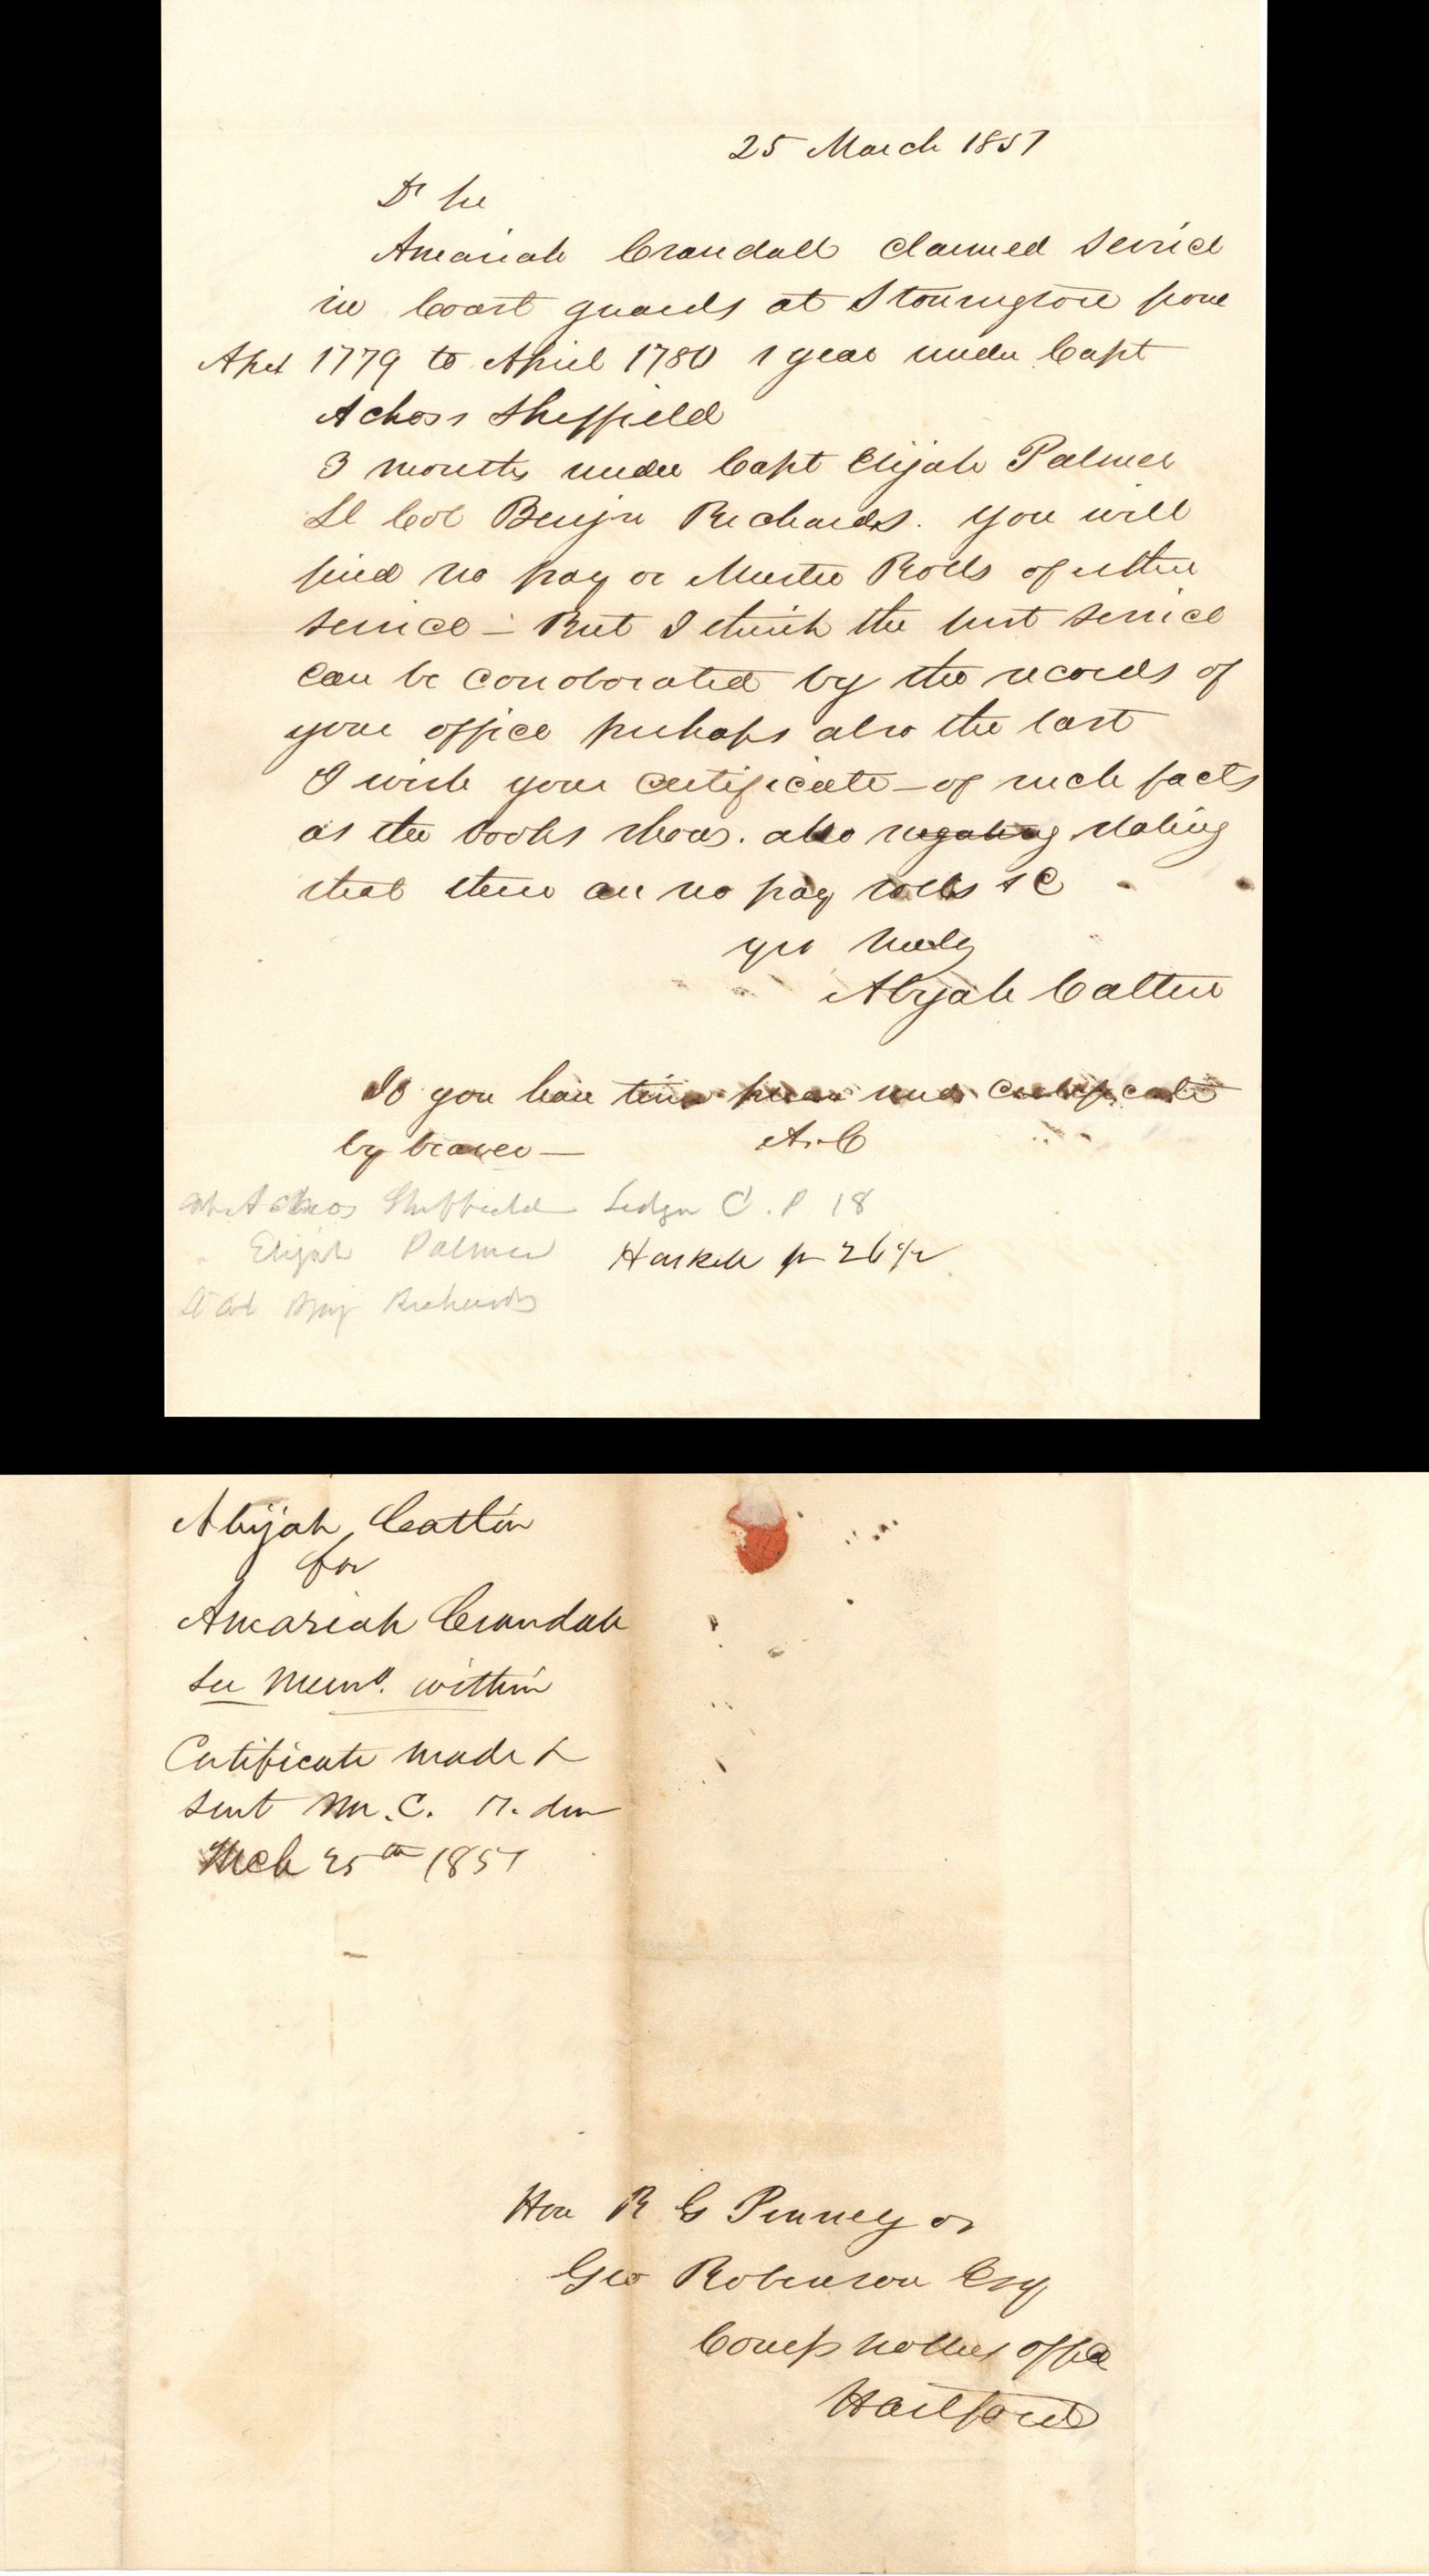 25 March 1851
Dr Sir
Amariah Crandall claimed service
in Coast guards at Stonington from
Apil 1779 to April 1780 1 year under Capt
Achors Sheffield
3 months under Capt Elijah Palmer
Lt Col Benjn Richards. you will
find no pay or Muster Rolls of either
service – But I think the first service
can be corroborated by the records of
your office perhaps also the last
I wish your certificate – of such facts
as the books show. also negating stating
that there are no pay rolls &c
yrs truly
Abijah Catlin
If you have time please send certificate
by bearer —
A. C
Achors Sheffield Ledger C. P 18
" Elijah Palmer Haskell p 26
Lt Col Benj Richards
Abijah Catlin
for
Amariah Crandall
See Memo. within
Certificate made &
sent Mr. C.
Mch 25th 1851
Hon R G Pinney or
Geo Robinson Esq
Comptrollers office
Hartford